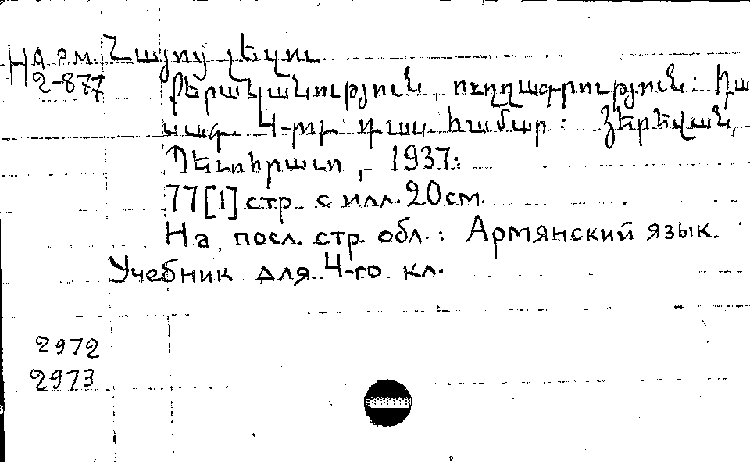 На арм. Հայոց լեզու
2-877
Քերականություն, ուղղագրություն: Դա
սագ. 4-րդ դաս. համար: Յերեվան,
Պետհրատ, 1937.
77[1] стр. с илл. 20см.
На посл. стр. обл.: Армянский язык.
Учебник для 4-го кл.
2972
2973